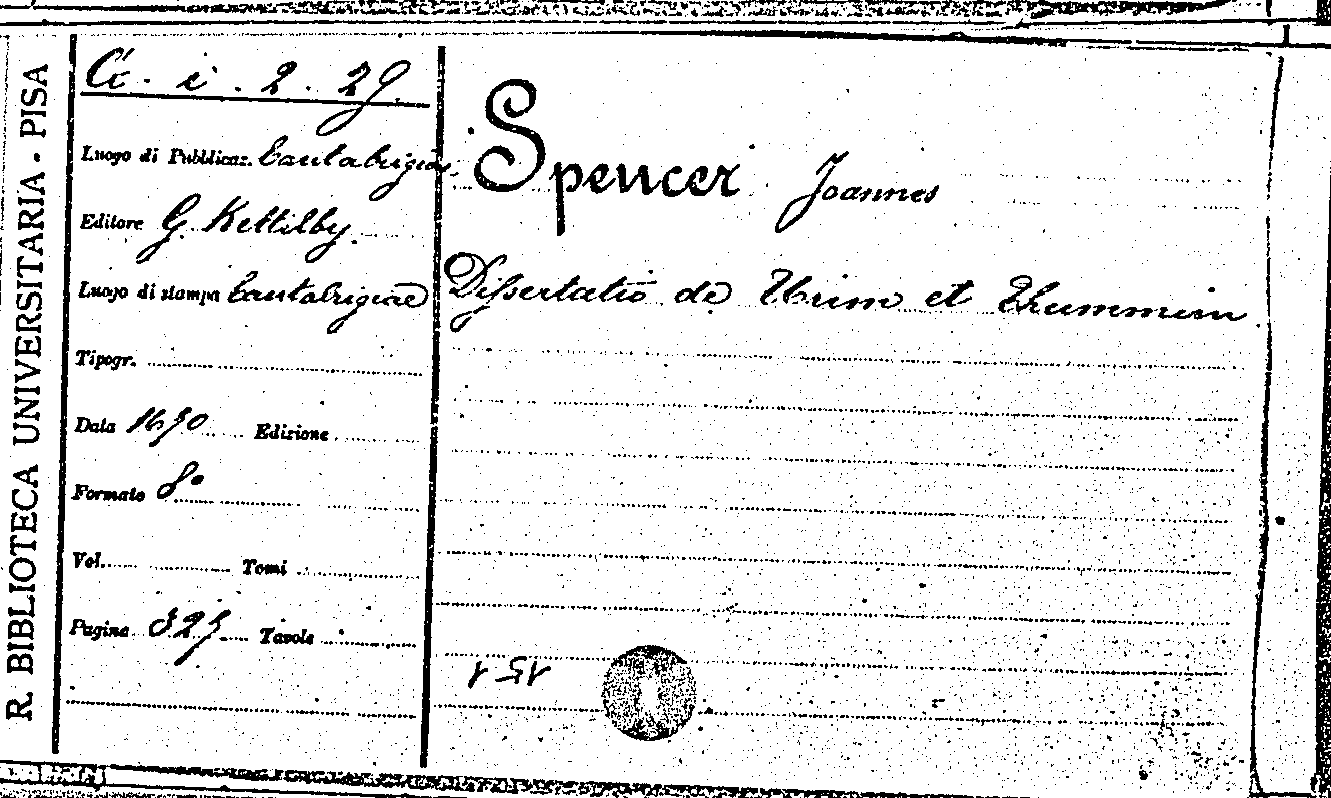 R. BIBLIOTECA UNIVERSITARIA - PISA
Cc. i. 2. 29
Luogo di Pubblicaz. Cantabrigiae
Editore G. Kettilby
Luogo di stampa Cantabrigiae
Tipogr.
Data 1670 Edizione
Formato 8°
Vol. Tomi
Pagine 325 Tavole
Spencer Joannes
Dissertatio de Urim et Thummim